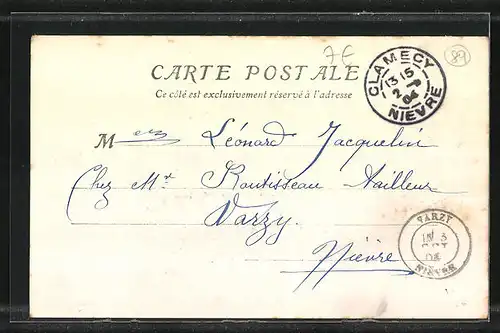 7€
89
CARTE POSTALE
Ce côté est exclusivement réservé à l'adresse
CLAMECY
13 15
2
04
NIEVRE
Léonard Jacquelin
Chez Mr Routisseau tailleur
Varzy.
Nièvre
VARZY
04
NIEVRE